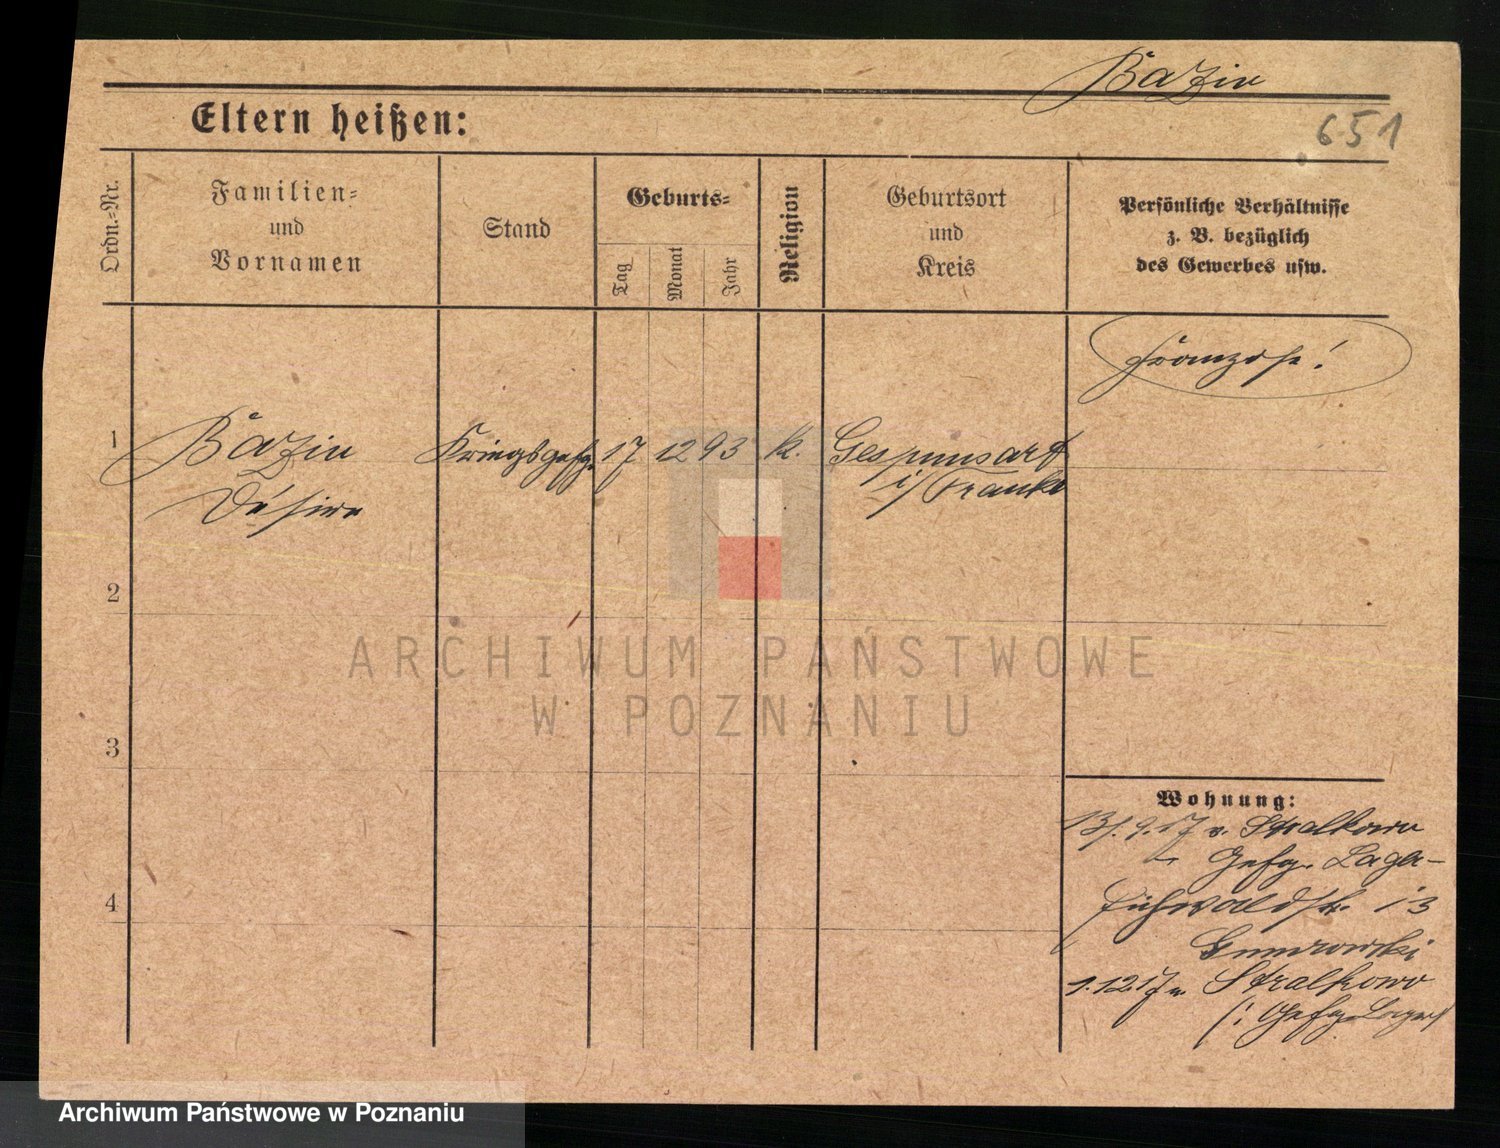 Bazin
Eltern heißen:
651
Ordn.=Nr.
Familien=
und
Vornamen
Stand
Geburts=
Tag
Monat
Jahr
Religion
Geburtsort
und
Kreis
Persönliche Verhältnisse
z. B. bezüglich
des Gewerbes usw.
Franzose!
1 Bazin Kriegsgefg. 17 12 93 k. Gespunsart
Désire i/ Frankr
2
3
4
Wohnung:
13/.9.17 v. Stralkowo
Gefg. Lager
13
1.12.17 n. Stralkowo
/: Gefg. Lager/
ARCHIWUM PAŃSTWOWE
W POZNANIU
Archiwum Państwowe w Poznaniu